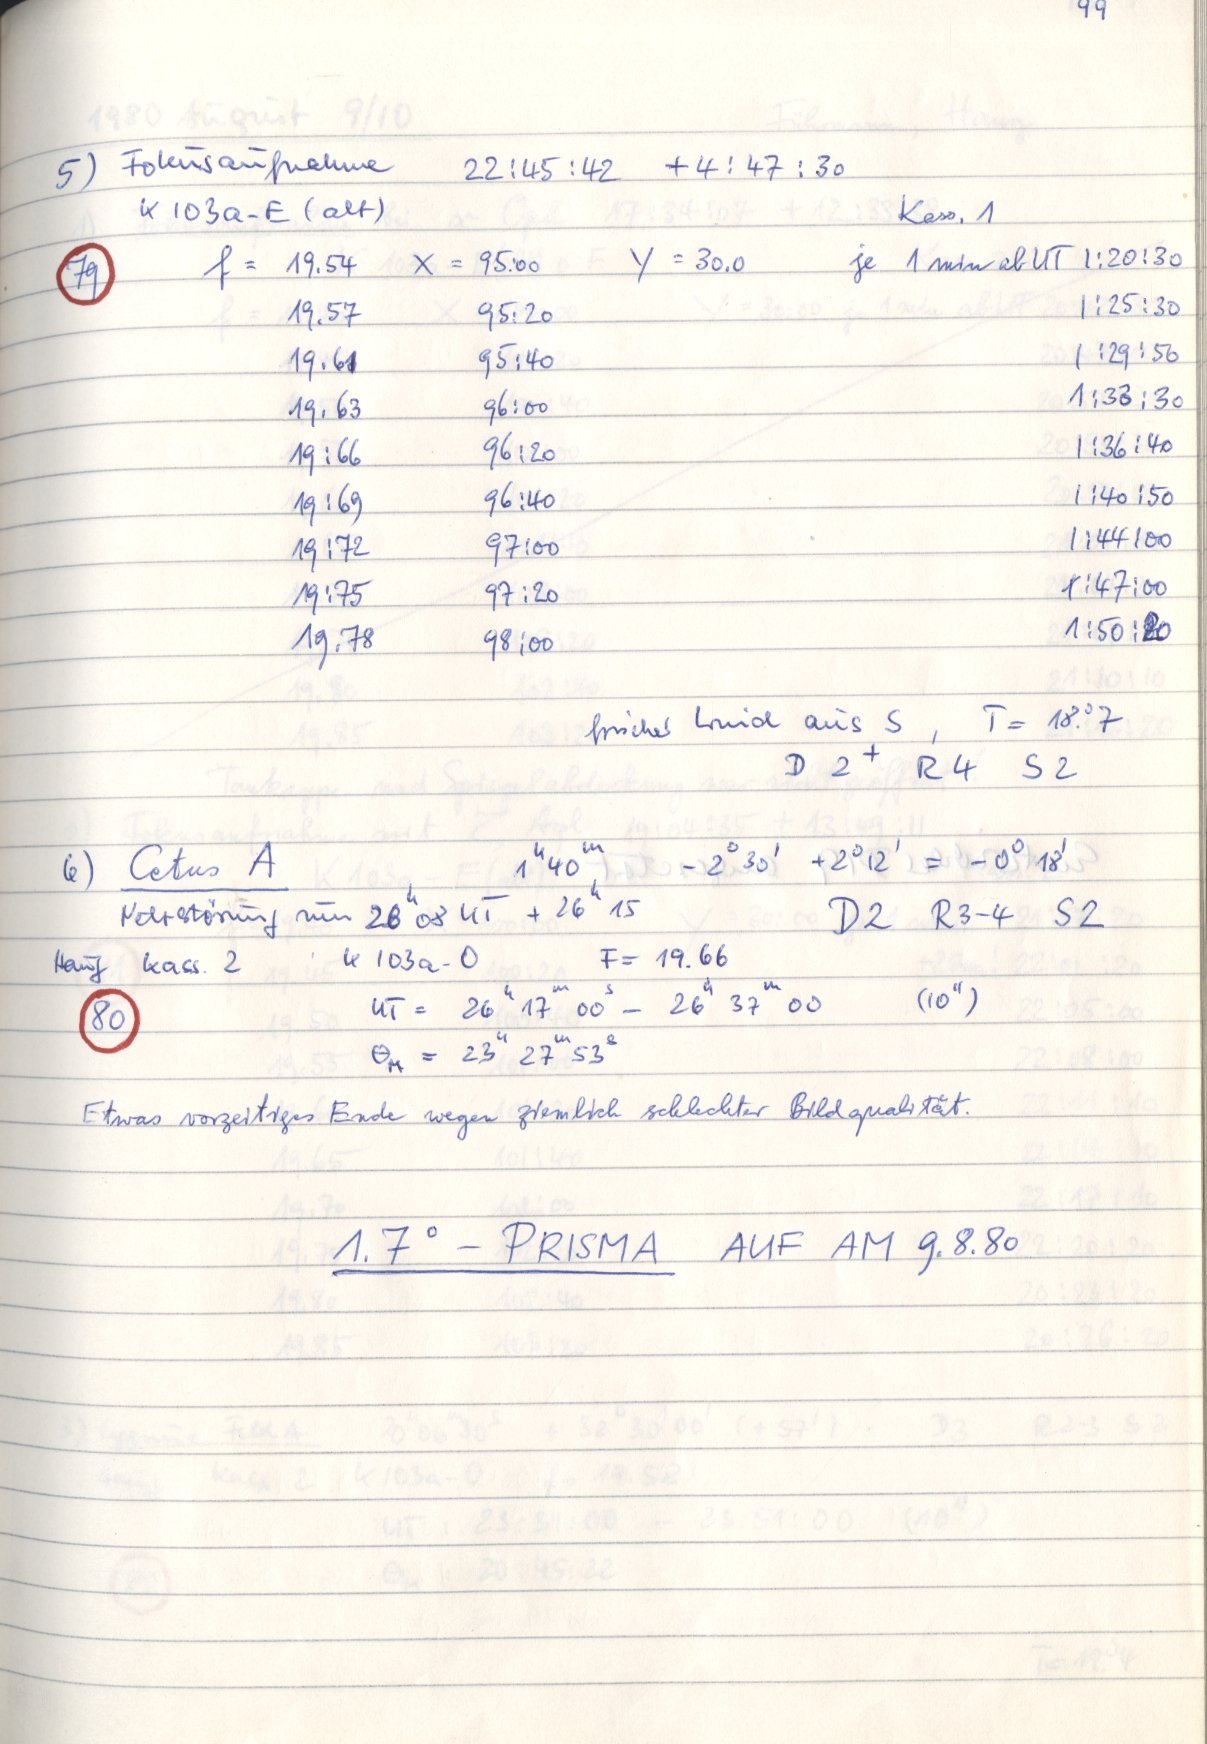 99
5) Fokusaufnahme 22:45:42 +4:47:30
K 103a-E (alt) Kass. 1
79 f = 19.54 X = 95:00 Y = 30.0 je 1 min ab UT 1:20:30
19.57 95:20 1:25:30
19.61 95:40 1:29:50
19.63 96:00 1:33:30
19:66 96:20 1:36:40
19:69 96:40 1:40:50
19:72 97:00 1:44:00
19:75 97:20 1:47:00
19:78 98:00 1:50:20
frischer Wind aus S, T = 18.°7
D 2+ R4 S2
6) Cetus A 1h40m -2°30' +2°12' = -0°18'
Netzstörung um 26h08 UT + 26h15 D2 R3-4 S2
Haug Kass. 2 K 103a-O F = 19.66
80 UT = 26h 17m 00s - 26h 37m 00 (10")
ΘM = 23h 27m 53s
Etwas vorzeitiges Ende wegen ziemlich schlechter Bildqualität.
1.7° - PRISMA AUF AM 9.8.80